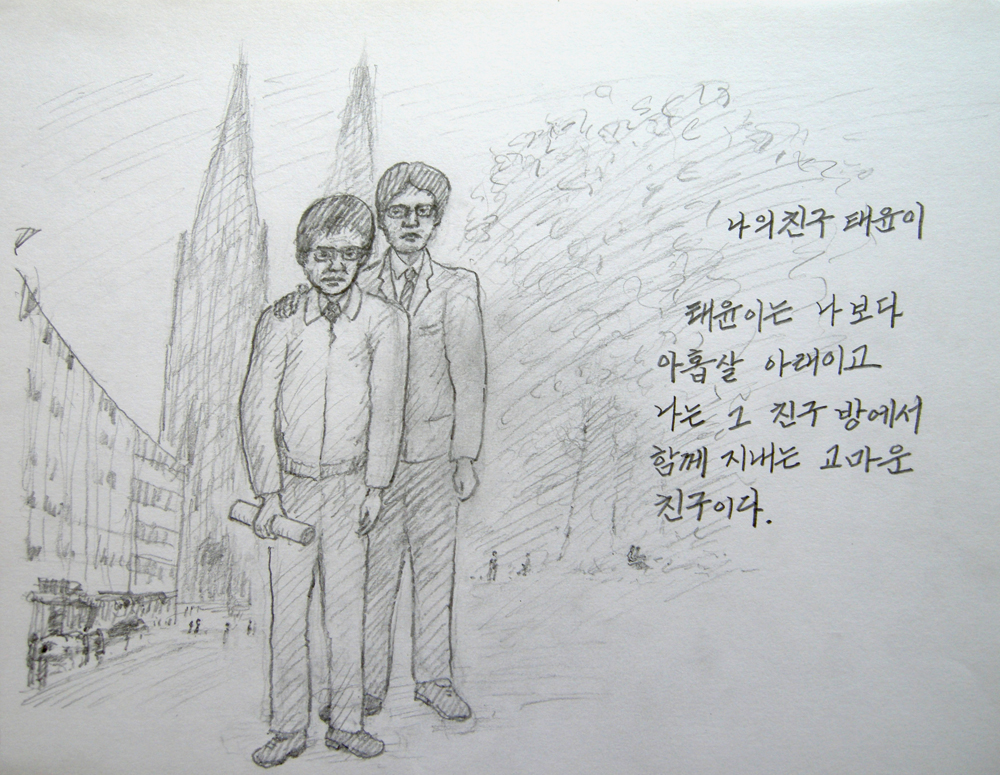 나의 친구 태윤이
태윤이는 나보다
아홉살 아래이고
나는 그 친구 방에서
함께 지내는 고마운
친구이다.